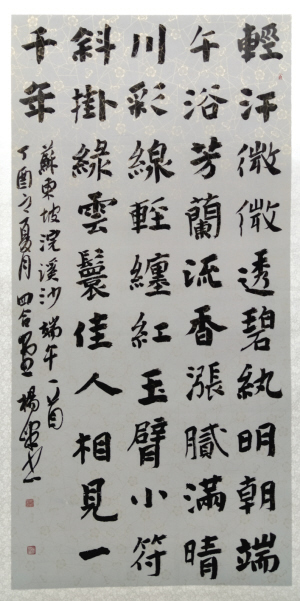 輕汗微微透碧紈明朝端
午浴芳蘭流香漲膩滿晴
川彩線輕纏紅玉臂小符
斜掛綠雲鬟佳人相見一
千年
蘇東坡浣溪沙端午一首
丁酉之夏月四合楊